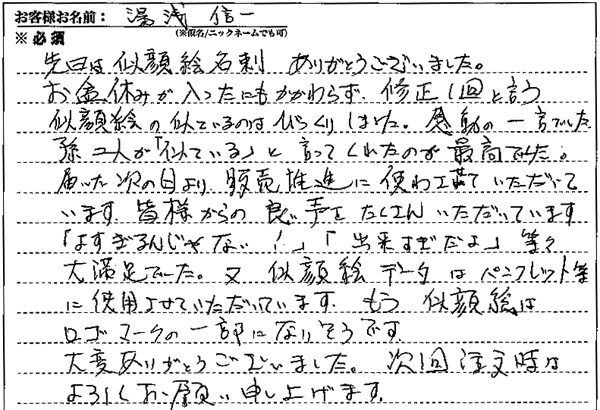 お客様お名前： 湯浅 信一
※必須 (※仮名/ニックネームでも可)
先日は似顔絵名刺 ありがとうございました。
お盆休みが入ったにもかかわらず、修正1回と言う
似顔絵の似ているのはびっくりしました。感動の一言でした
孫二人が「似ている」と言ってくれたのが最高でした。
届いた次の日より 販売推進に使わせて いただいて
います 皆様からの良い声をたくさんいただいています
「よすぎるんじゃない！」「出来すぎだよ」等々
大満足でした。又 似顔絵データはパンフレット等
に使用させていただいています。もう 似顔絵は
ロゴマークの一部になりそうです
大変ありがとうございました。次回注文時は
よろしくお願い申し上げます。